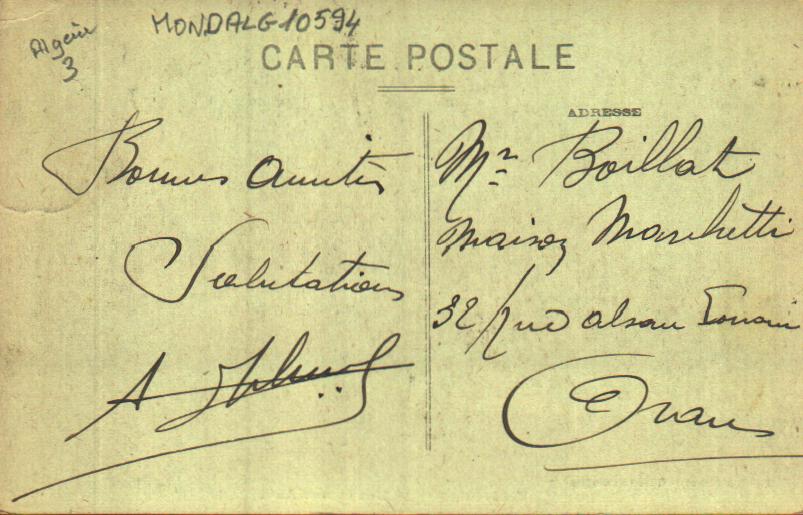 Algérie
3
MONDALG10594
CARTE POSTALE
ADRESSE
Bonnes Amitiés
Salutations
A
Mr Boillat
Maison Marchetti
32 Rue Alsace Lorraine
Oran